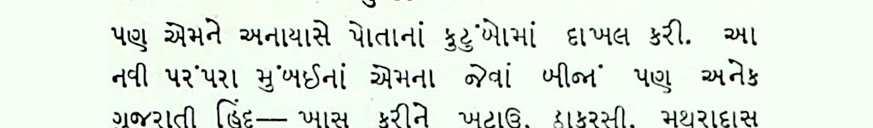 પણ એમને અનાયાસે પોતાનાં કુટુંબોમાં દાખલ કરી. આ
નવી પરંપરા મુંબઈનાં એમના જેવાં બીજાં પણ અનેક
ગુજરાતી હિંદ— ખાસ કરીને ખટાઉ, ઠાકરસી, મથરાદાસ